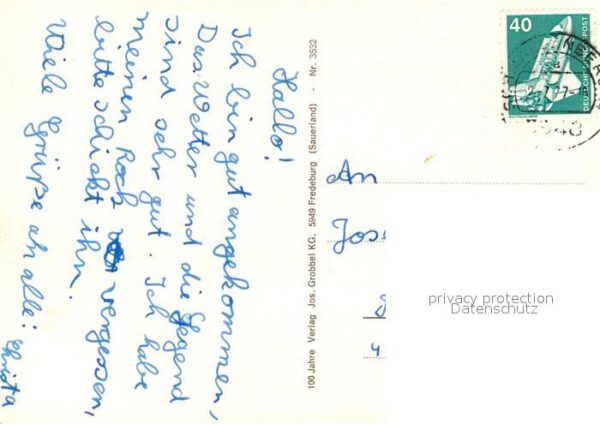 Hallo!
Ich bin gut angekommen,
Das Wetter und die Gegend
sind sehr gut. Ich habe
meinen Rock vergessen,
bitte schickt ihn.
Viele Grüße an alle!
Christa
100 Jahre Verlag Jos. Grobbel KG, 5949 Fredeburg (Sauerland) · Nr. 3532
40
DEUTSCHE BUNDESPOST
An
Jose
privacy protection
Datenschutz